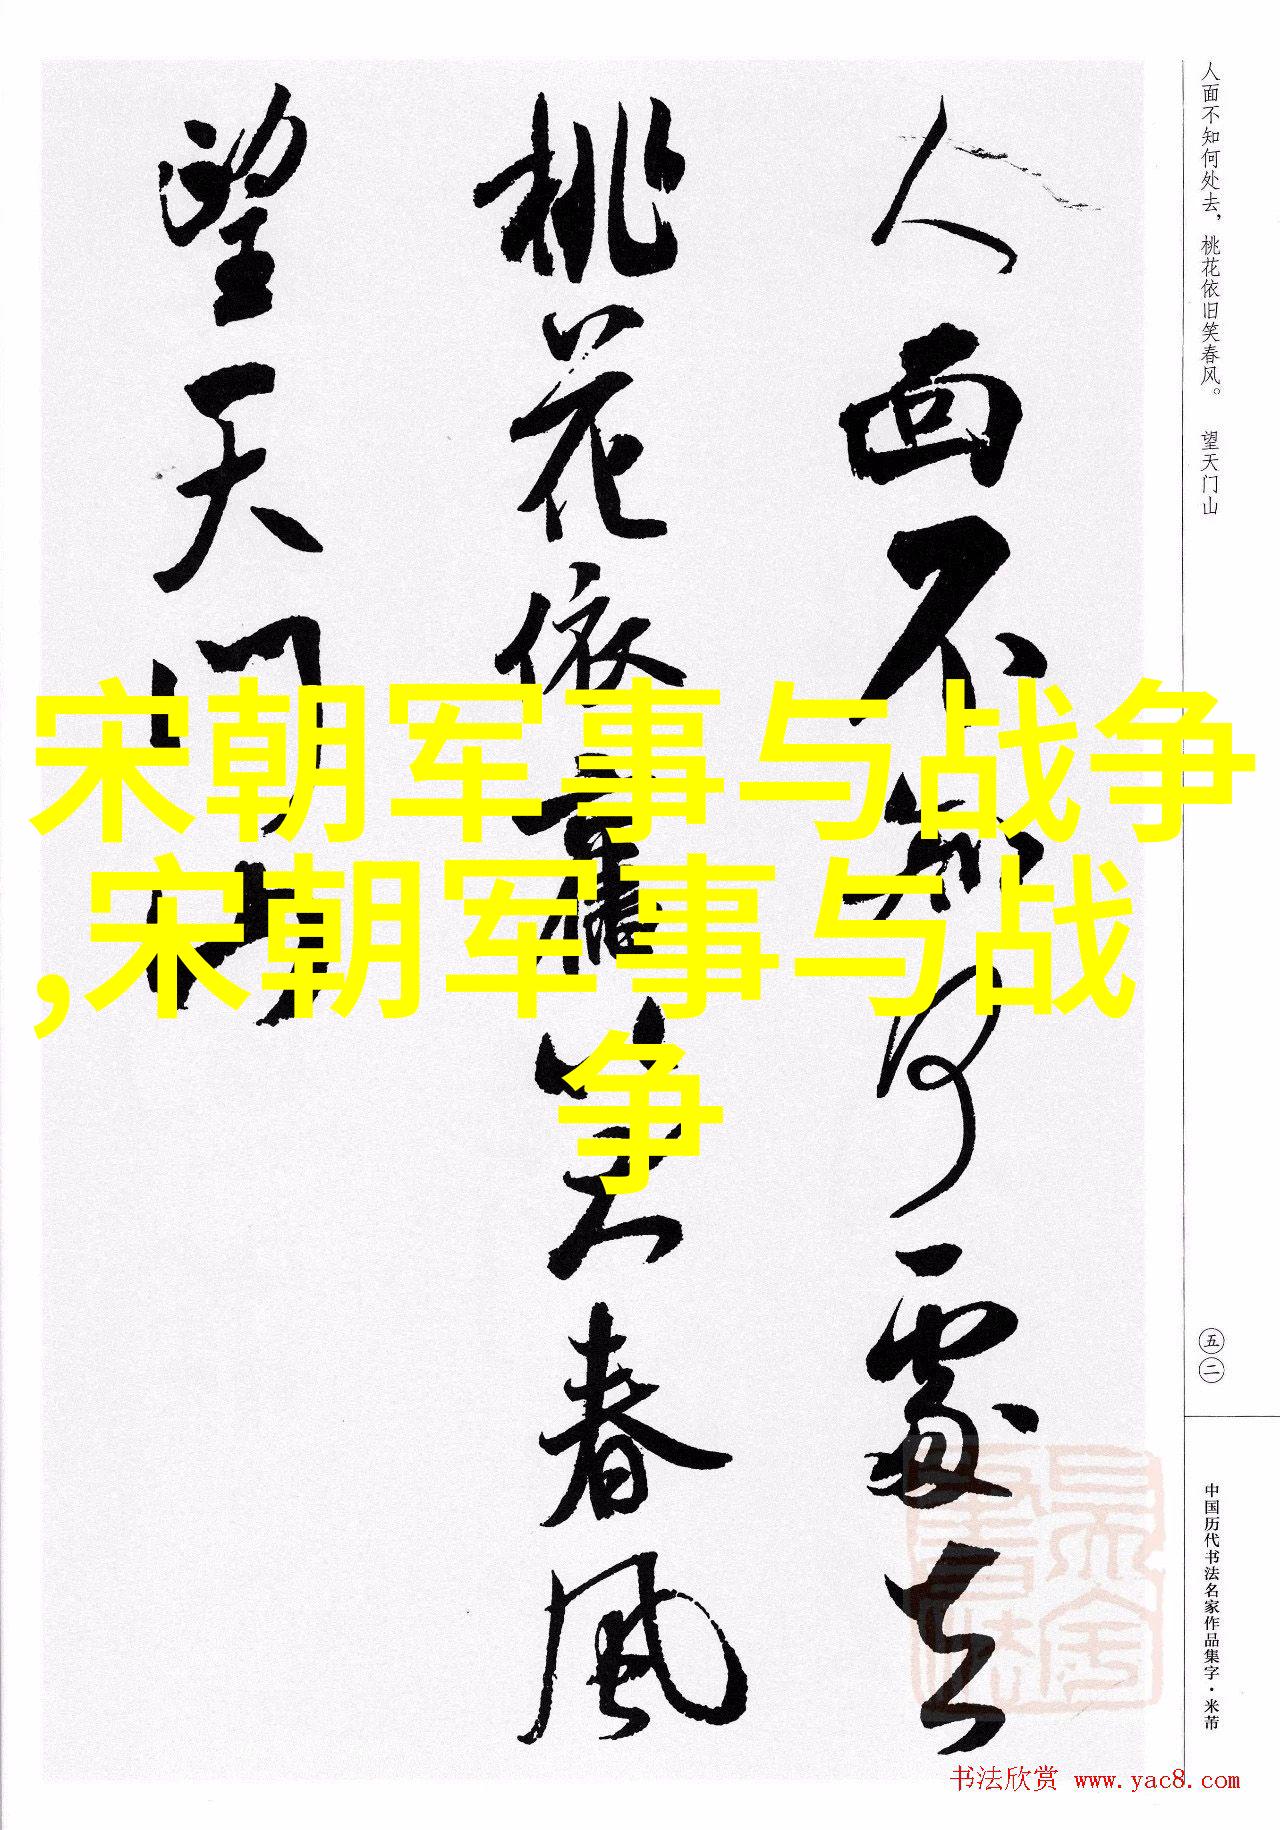 人面不知何处去，桃花依旧笑春风。 望天门山
人面不知何處去
桃花依舊笑春風
望天門山
宋朝军事与战争
,宋朝军事与战
争
五二
中国历代书法名家作品集字·米芾
书法欣赏 www.yac8.com